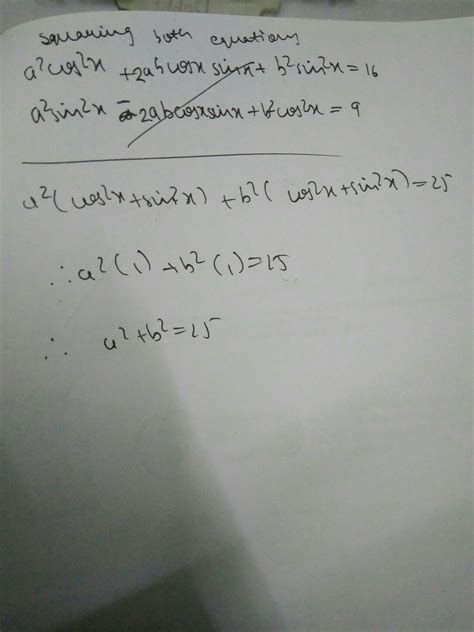 squaring both equations
a²cos²x + 2abcosx sinx + b²sin²x = 16
a²sin²x - 2abcosxsinx + b²cos²x = 9
a²(cos²x+sin²x) + b²(cos²x+sin²x)=25
∴ a²(1) + b²(1)=25
∴ a²+b²=25